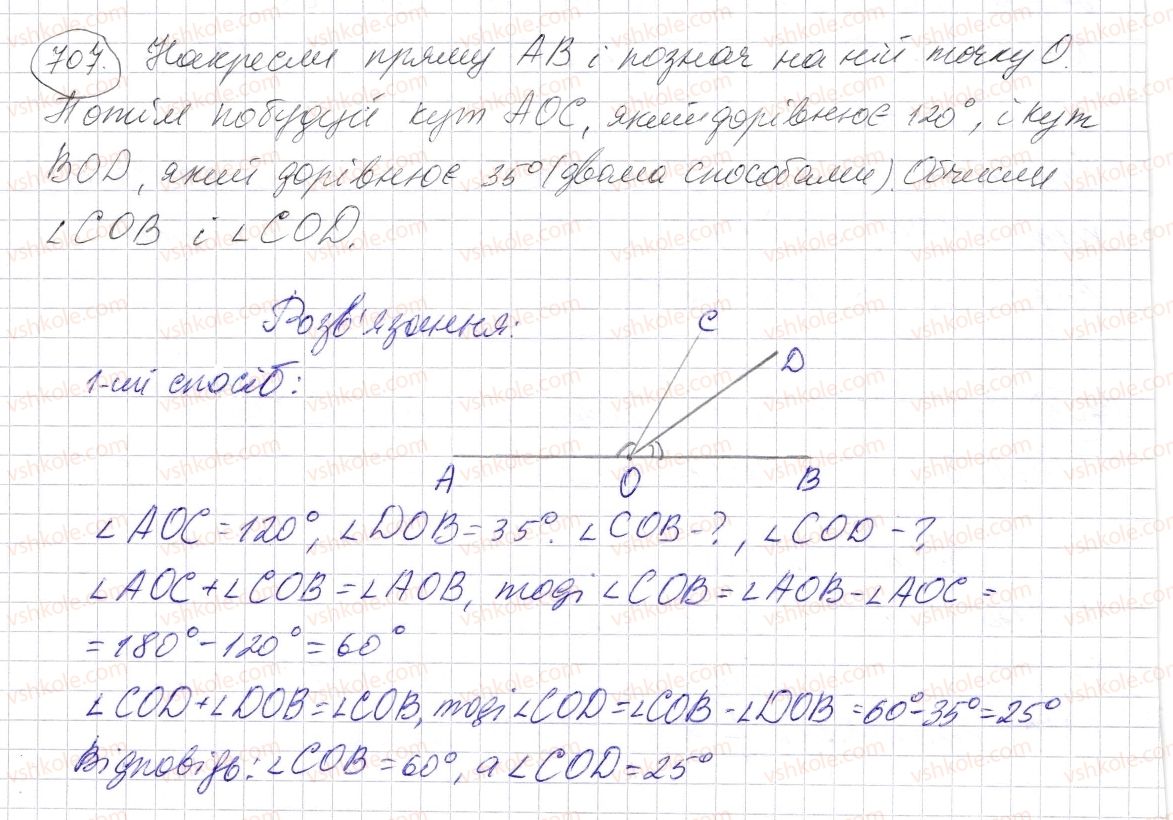 707. Накресли пряму AB і познач на ній точку O.
Потім побудуй кут AOC, який дорівнює 120°, і кут
BOD, який дорівнює 35° (двома способами). Обчисли
∠COB і ∠COD.
Розв'язання:
1-ий спосіб:
C
D
A
O
B
∠AOC = 120°, ∠DOB = 35°. ∠COB - ?, ∠COD - ?
∠AOC + ∠COB = ∠AOB, тоді ∠COB = ∠AOB - ∠AOC =
= 180° - 120° = 60°
∠COD + ∠DOB = ∠COB, тоді ∠COD = ∠COB - ∠DOB = 60° - 35° = 25°
Відповідь: ∠COB = 60°, а ∠COD = 25°
vshkole.com